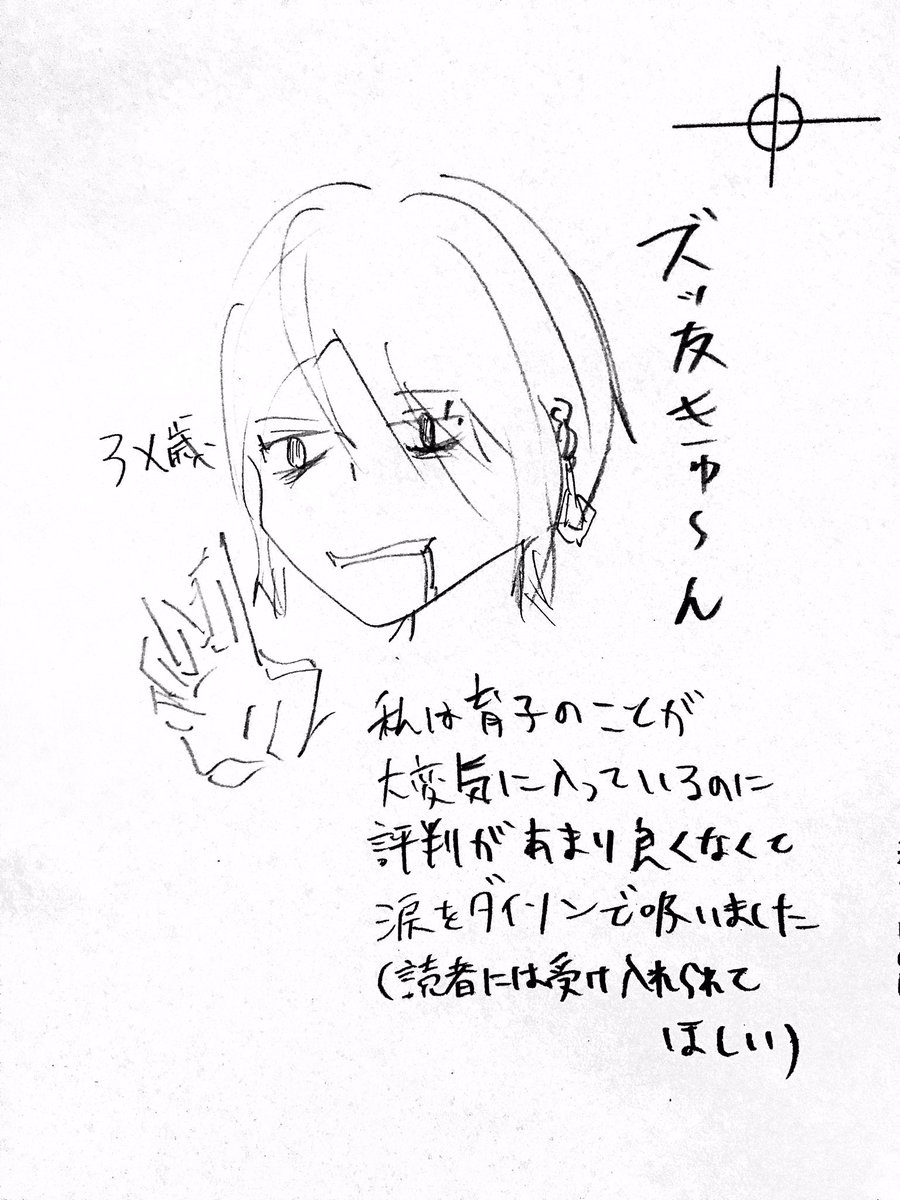 ズッ友きゅ〜ん
3X歳
私は育子のことが
大変気に入っているのに
評判があまり良くなくて
涙をダイソンで吸いました
(読者には受け入れられて
ほしい)